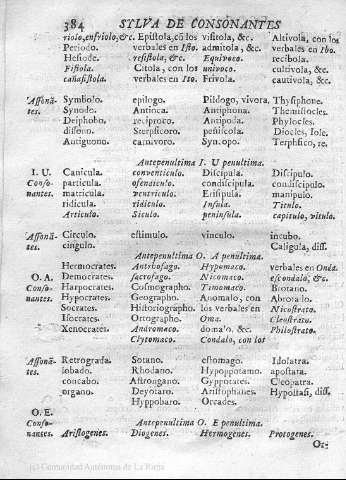 384 SYLVA DE CONSONANTES
riolo, enfriolo, &c. Epístola, cõ los visitola, &c. Altivola, con los
Periodo. verbales en Isto. admitola, &c. verbales en Ibo.
Hesiode. resistola, &c. Equivoco. recibola.
Fistola. Citola, con los univoco. cultivola, &c.
cañafistola. verbales en Ito. Frivola. cautivola, &c.
Assonãtes. Symbolo. epilogo. Pildogo, vivora. Thysiphone.
Synodo. Antioca. Antiphona. Themistocles.
Deiphobo. reciproco. Antipoda. Phylocles.
dissono. Sterpsicoro. pesticola. Diocles, Iole.
Antiguono. carnivoro. Syncopo. Terphsico, re.
Antepenultima I. U penultima.
I. U. Canicula. conventiculo. Discipula. Discipulo.
Conso- particula. ofenaculo. condiscipula. condiscipulo.
nantes. matricula. ventriculo. Erisipula. manipulo.
ridicula. ridiculo. Insula. Titulo.
Articulo. Siculo. peninsula. capitulo, vitulo.
Assonãtes. Circulo. estimulo. vinculo. incubo.
cingulo. Caligula, diss.
Antepenultima O. A penultima.
Hermocrates. Antrofago. Hypomaco. verbales en Onda.
O. A. Democrates. sacrofago. Nicomaco. escondalo, &c.
Conso- Harpocrates. Cosmographo. Timomaco. Biotano.
nantes. Hypocrates. Geographo. Anomalo, con Abrotalo.
Socrates. Historiographo. los verbales en Nicostrato.
Isocrates. Ortographo. Oma. Cleostrato.
Xenocrates. Andromaco. domalo, &c. Philostrato.
Clytomaco. Condalo, con los
Assonãtes. Retrografa. Sotano. estomago. Idolatra.
lobado. Rhodano. Hypoppotamo. apostata.
concabo. Astrongano. Gyppotates. Cleopatra.
organo. Deyotaro. Aristophanes. Hypostasi, diss.
Hyppobaro. Orcades.
O. E. Antepenultima O. E penultima.
Conso-
nantes. Aristogenes. Diogenes. Hermogenes. Protogenes.
O:-
(c) Comunidad Autónoma de La Rioja